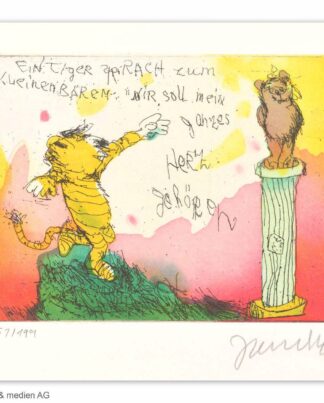 EiN Tiger spRACH zum
kleinen BÄREN: "Dir soll mein
ganzes
Herz
gehören
/199
& medien AG